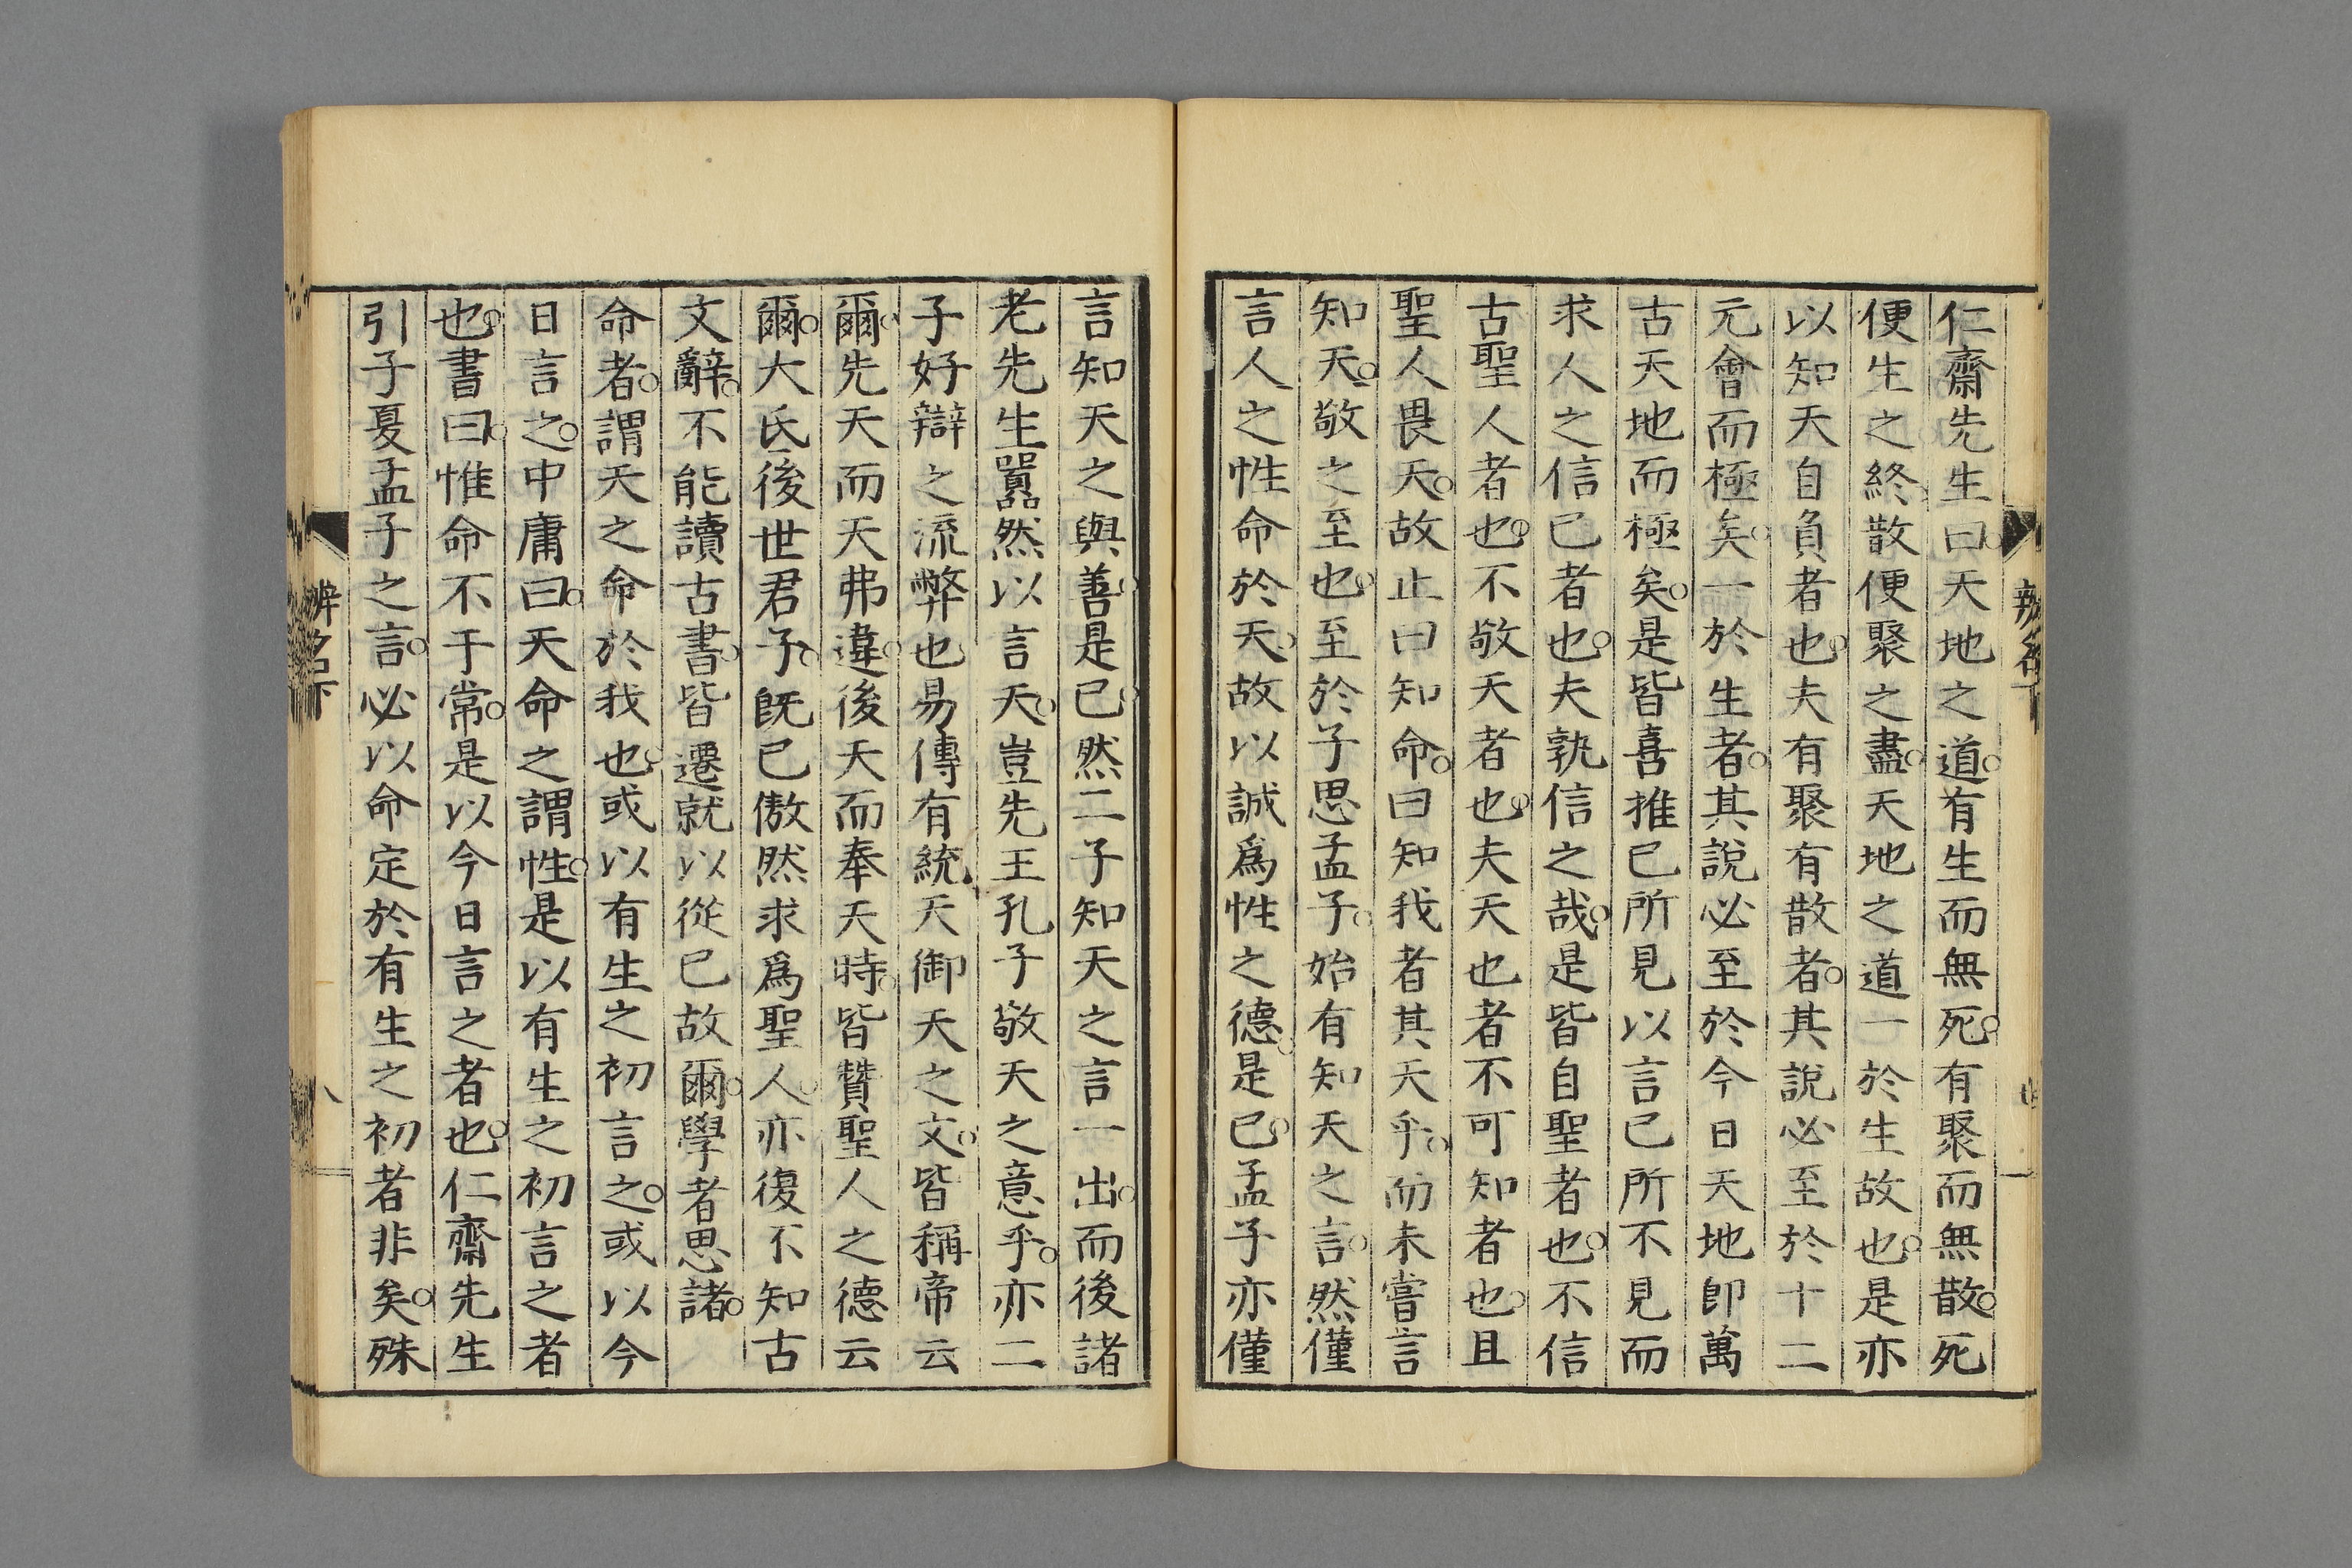 仁齋先生曰天地之道有生而無死有聚而無散死
便生之終散便聚之盡天地之道一於生故也是亦
以知天自負者也夫有聚有散者其說必至於十二
元會而極矣一於生者其說必至於今日天地卽萬
古天地而極矣是皆喜推已所見以言已所不見而
求人之信已者也夫孰信之哉是皆自聖者也不信
古聖人者也不敬天者也夫天也者不可知者也且
聖人畏天故止曰知命曰知我者其天乎而未嘗言
知天敬之至也至於子思孟子始有知天之言然僅
言人之性命於天故以誠爲性之德是已孟子亦僅
言知天之與善是已然二子知天之言一出而後諸
老先生囂然以言天豈先王孔子敬天之意乎亦二
子好辯之流弊也易傳有統天御天之文皆稱帝云
爾先天而天弗違後天而奉天時皆贊聖人之德云
爾大氐後世君子旣已傲然求爲聖人亦復不知古
文辭不能讀古書皆遷就以從已故爾學者思諸
命者謂天之命於我也或以有生之初言之或以今
日言之中庸曰天命之謂性是以有生之初言之者
也書曰惟命不于常是以今日言之者也仁齋先生
引子夏孟子之言必以命定於有生之初者非矣殊
辨名下
八